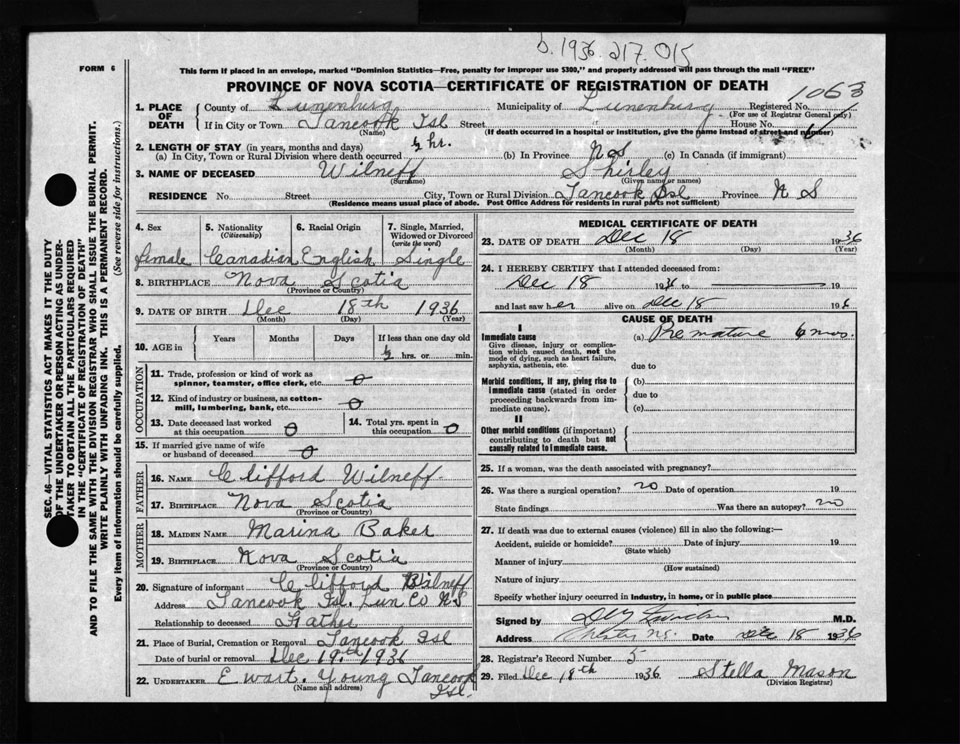 b. 1936. 217. 015
FORM 6
This form if placed in an envelope, marked "Dominion Statistics—Free, penalty for improper use $300," and properly addressed will pass through the mail "FREE"
PROVINCE OF NOVA SCOTIA—CERTIFICATE OF REGISTRATION OF DEATH
1063
1. PLACE OF DEATH County of Lunenburg Municipality of Lunenburg Registered No.
(For use of Registrar General only)
If in City or Town Tancook Isl Street House No.
(Name) (If death occurred in a hospital or institution, give the name instead of street and number)
2. LENGTH OF STAY (in years, months and days) ½ hr.
(a) In City, Town or Rural Division where death occurred (b) In Province N S (c) In Canada (if immigrant)
3. NAME OF DECEASED Wilneff Shirley
(Surname) (Given name or names)
RESIDENCE No. Street City, Town or Rural Division Tancook Isl Province N S
(Residence means usual place of abode. Post Office Address for residents in rural parts not sufficient)
SEC. 46—VITAL STATISTICS ACT MAKES IT THE DUTY
OF THE UNDERTAKER OR PERSON ACTING AS UNDER-
TAKER TO OBTAIN ALL THE PARTICULARS REQUIRED
IN THE "CERTIFICATE OF REGISTRATION OF DEATH"
AND TO FILE THE SAME WITH THE DIVISION REGISTRAR WHO SHALL ISSUE THE BURIAL PERMIT.
WRITE PLAINLY WITH UNFADING INK. THIS IS A PERMANENT RECORD.
Every item of information should be carefully supplied. (See reverse side for instructions.)
4. Sex 5. Nationality (Citizenship) 6. Racial Origin 7. Single, Married, Widowed or Divorced (write the word)
female Canadian English Single
8. BIRTHPLACE Nova Scotia
(Province or Country)
9. DATE OF BIRTH Dec 18th 1936
(Month) (Day) (Year)
10. AGE in Years Months Days If less than one day old
½ hrs. or min.
OCCUPATION
11. Trade, profession or kind of work as spinner, teamster, office clerk, etc. 0
12. Kind of industry or business, as cotton-mill, lumbering, bank, etc. 0
13. Date deceased last worked at this occupation 0 14. Total yrs. spent in this occupation 0
15. If married give name of wife or husband of deceased 0
FATHER
16. NAME Clifford Wilneff
17. BIRTHPLACE Nova Scotia
(Province or Country)
MOTHER
18. MAIDEN NAME Marina Baker
19. BIRTHPLACE Nova Scotia
(Province or Country)
20. Signature of informant Clifford Wilneff
Address Tancook Isl. Lun Co N.S
Relationship to deceased Father
21. Place of Burial, Cremation or Removal Tancook Isl
Date of burial or removal Dec 19th 1936
22. UNDERTAKER Ewart. Young Tancook Isl.
(Name and address)
MEDICAL CERTIFICATE OF DEATH
23. DATE OF DEATH Dec 18 1936
(Month) (Day) (Year)
24. I HEREBY CERTIFY that I attended deceased from:
Dec 18 1936 to 19
and last saw her alive on Dec 18 1936
CAUSE OF DEATH
I
Immediate cause (a) Premature 6 mos.
Give disease, injury or complication which caused death, not the mode of dying, such as heart failure, asphyxia, asthenia, etc.
due to
Morbid conditions, if any, giving rise to immediate cause (stated in order proceeding backwards from immediate cause).
(b)
due to
(c)
II
Other morbid conditions (if important) contributing to death but not causally related to immediate cause.
25. If a woman, was the death associated with pregnancy?
26. Was there a surgical operation? no Date of operation 19
State findings Was there an autopsy? no
27. If death was due to external causes (violence) fill in also the following:—
Accident, suicide or homicide? Date of injury 19
(State which)
Manner of injury
(How sustained)
Nature of injury
Specify whether injury occurred in industry, in home, or in public place
Signed by M.D.
Address Chester N.S. Date Dec 18 1936
28. Registrar's Record Number 5
29. Filed Dec 18th 1936 Stella Mason
(Division Registrar)